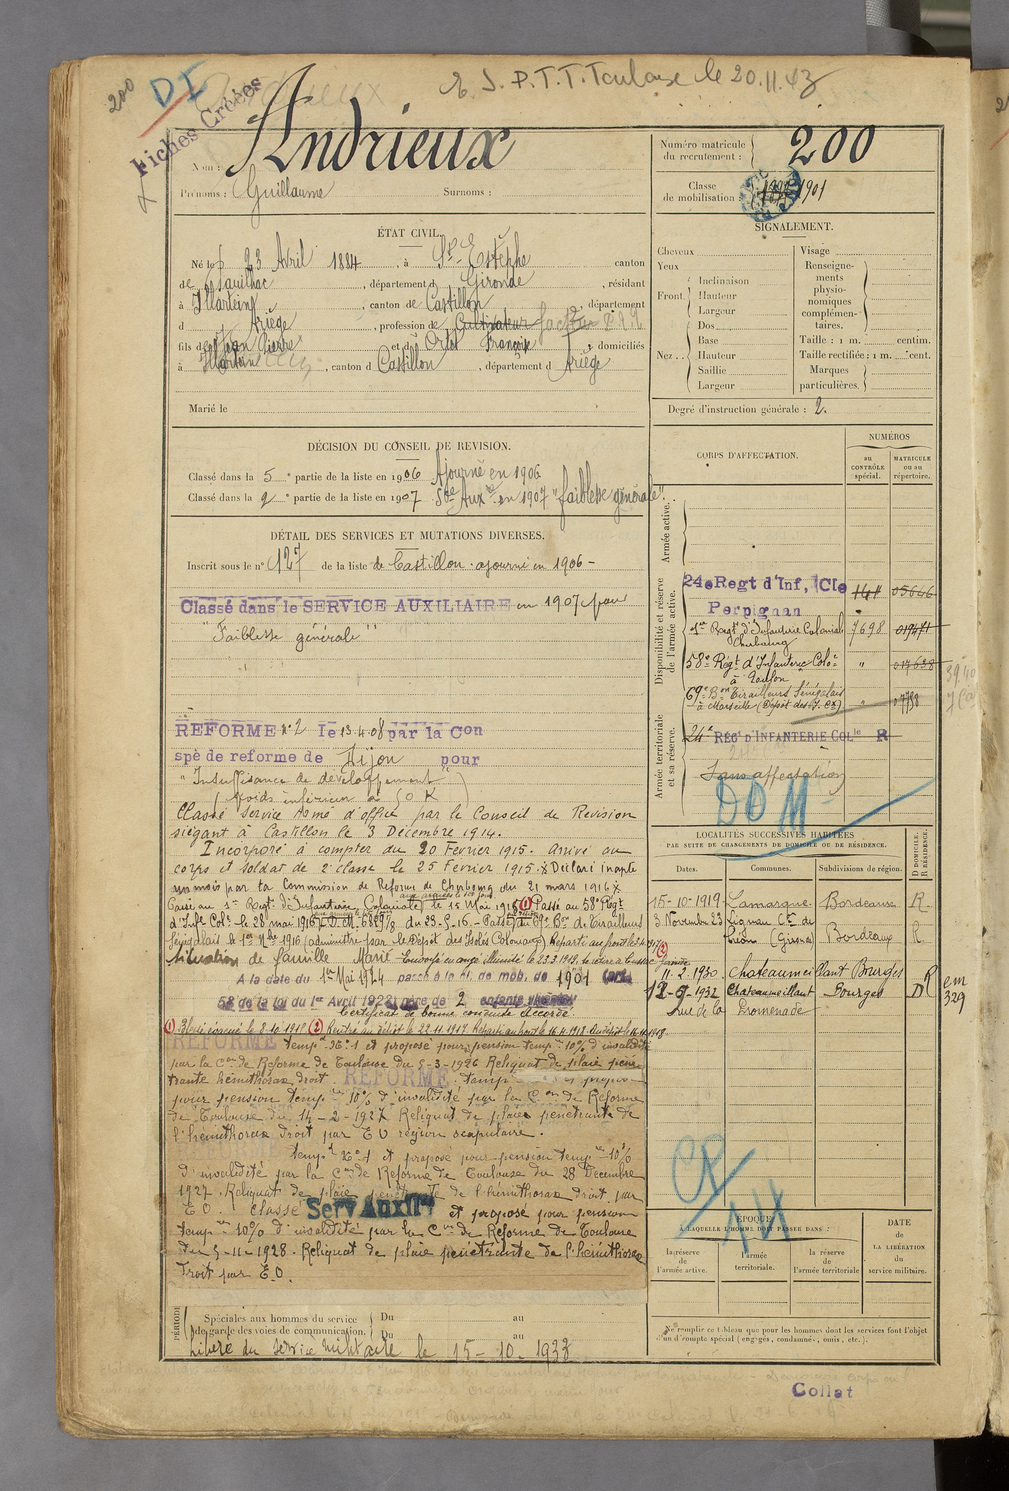 200
DI
E S. P.T.T. Toulouse le 20.11.43
Fiches Créées
Nom : Andrieux
Prénoms : Guillaume Surnoms :
Numéro matricule du recrutement : 200
Classe de mobilisation : 1901
ÉTAT CIVIL.
Né le 23 Avril 1884, à St-Estèphe canton
de Pauillac, département d Gironde, résidant
à Illartein, canton de Castillon, département
d Ariège, profession de Cultivateur facteur
fils de Jean Pierre et d Ortet Françoise, domiciliés
à Illartein, canton d Castillon, département d Ariège
Marié le
SIGNALEMENT.
Cheveux
Yeux
Front. Inclinaison
Hauteur
Largeur
Nez... Dos
Base
Hauteur
Saillie
Largeur
Visage
Renseignements physionomiques complémentaires.
Taille : 1 m. centim.
Taille rectifiée : 1 m. cent.
Marques particulières.
Degré d'instruction générale : 2.
DÉCISION DU CONSEIL DE REVISION.
Classé dans la 5e partie de la liste en 1906 Ajourné en 1906
Classé dans la 2e partie de la liste en 1907 Sce Auxre en 1907 "faiblesse générale".
DÉTAIL DES SERVICES ET MUTATIONS DIVERSES.
Inscrit sous le n° 127 de la liste de Castillon. ajourné en 1906 -
Classé dans le SERVICE AUXILIAIRE en 1907 pour
"Faiblesse générale"
REFORME n°2 le 13-4-08 par la Con
spé de reforme de Dijon pour
"Insuffisance de développement"
(Poids inférieur à 50 K)
Classé Service Armé d'office par le Conseil de Révision
siégant à Castillon le 3 Décembre 1914.
Incorporé à compter du 20 Février 1915. Arrivé au
corps et soldat de 2e classe le 25 Février 1915. Déclaré inapte
un mois par la Commission de Réforme de Cherbourg du 21 mars 1916
Passé au 1er Régt d'Infanterie Coloniale le 15 Mai 1916 (1) Passé au 58e Régt
d'Infie Cole le 28 mai 1916 (D.M. 6829 1/8 du 23-5-16.- Passé au 69e Bon de Tirailleurs
Sénégalais le 1er 9bre 1916 (administré par le Dépôt des Isolés Coloniaux)
Situation de famille Marié
A la date du 1er Mai 1924 passé à la cl. de mob. de 1901 (art.
58 de la loi du 1er Avril 1923) père de 2 enfants vivants
Certificat de bonne conduite Accordé.
(1) Blessé évacué le 8-10-1918 (2) Rentré au dépôt le 22.11.1917
REFORME temp. N°1 et proposé pour pension tempre 10% d'invalidité
par la Con de Réforme de Toulouse du 5-3-1926 Reliquat de plaie péné
trante hémithorax droit. REFORME temp
pour pension tempre 10% d'invalidité par la Con de Réforme
de Toulouse du 14-2-1927 Reliquat de plaie pénétrante de
l'hémithorax droit par E O région scapulaire.
temp. N°1 et proposé pour pension tempre 10%
d'invalidité par la Con de Réforme de Toulouse du 28 Décembre
1927. Reliquat de plaie pénétrante de l'hémithorax droit par
E O. Classé Serv. Auxil. et proposé pour pension
tempre 10% d'invalidité par la Con de Réforme de Toulouse
du 5-11-1928. Reliquat de plaie pénétrante de l'hémithorax
droit par E.O.
PÉRIODE
Spéciales aux hommes du service de garde des voies de communication.
Du au
Du au
Libéré du service militaire le 15-10-1933
CORPS D'AFFECTATION.
NUMÉROS
au CONTRÔLE spécial.
MATRICULE ou au répertoire.
Armée active.
Disponibilité et réserve de l'armée active.
24e Regt d'Inf, Cle Perpignan 05646
1er Régt d'Infanterie Coloniale Cherbourg 7698
58e Régt d'Infanterie Colle à Toulon " 017638
69e Bon Tirailleurs Sénégalais à Marseille (Dépôt des I. Cx)
Armée territoriale et sa réserve.
24e RÉGt D'INFANTERIE COLle R
Sans affectation
DOM
LOCALITÉS SUCCESSIVES HABITÉES
PAR SUITE DE CHANGEMENTS DE DOMICILE OU DE RÉSIDENCE.
Dates. Communes. Subdivisions de région. D DOMICILE. R RÉSIDENCE.
15-10-1919 Lamarque Bordeaux R.
3 Novembre 23 Bordeaux R.
11-2-1930 Chateaumeillant Bourges
12-9-1932 Chateaumeillant Bourges DR em 329
rue de la Promenade
CP
144
ÉPOQUE
À LAQUELLE L'HOMME DOIT PASSER DANS :
la réserve de l'armée active.
l'armée territoriale.
la réserve de l'armée territoriale
DATE DE LA LIBÉRATION du service militaire.
Ne remplir ce tableau que pour les hommes dont les services font l'objet
d'un décompte spécial (engagés, condamnés, omis, etc.).
Collat